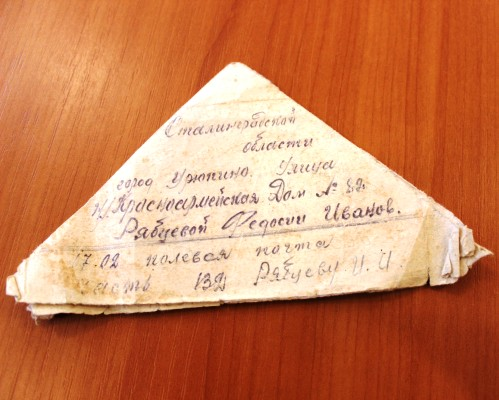 Сталинградской
области
город Урюпино. Улица
Красноармейская Дом № 82
Рябцевой Федосии Иванов.
17.02 полевая почта
часть 132 Рябцеву И. И.